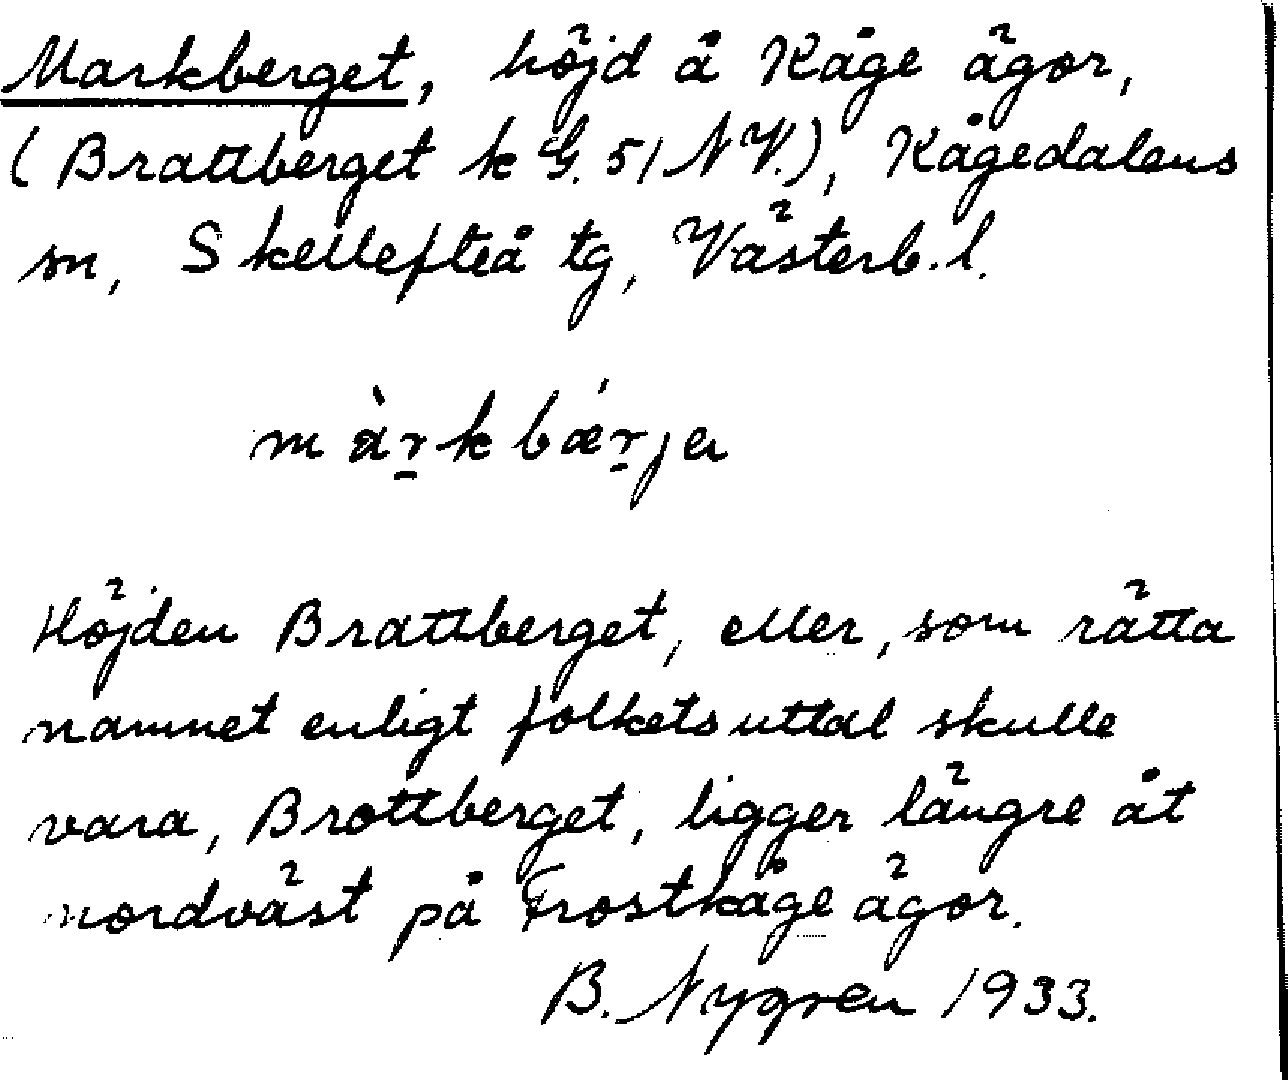 Markberget, höjd å Kåge ägor,
(Brattberget k G. 51 NV.), Kågedalens
sn, Skellefteå tg, Västerb. l.
màr̠kbǽr̠jer
Höjden Brattberget, eller, som rätta
namnet enligt folkets uttal skulle
vara, Brottberget, ligger längre åt
nordväst på Frostkåge ägor.
B. Nygren 1933.